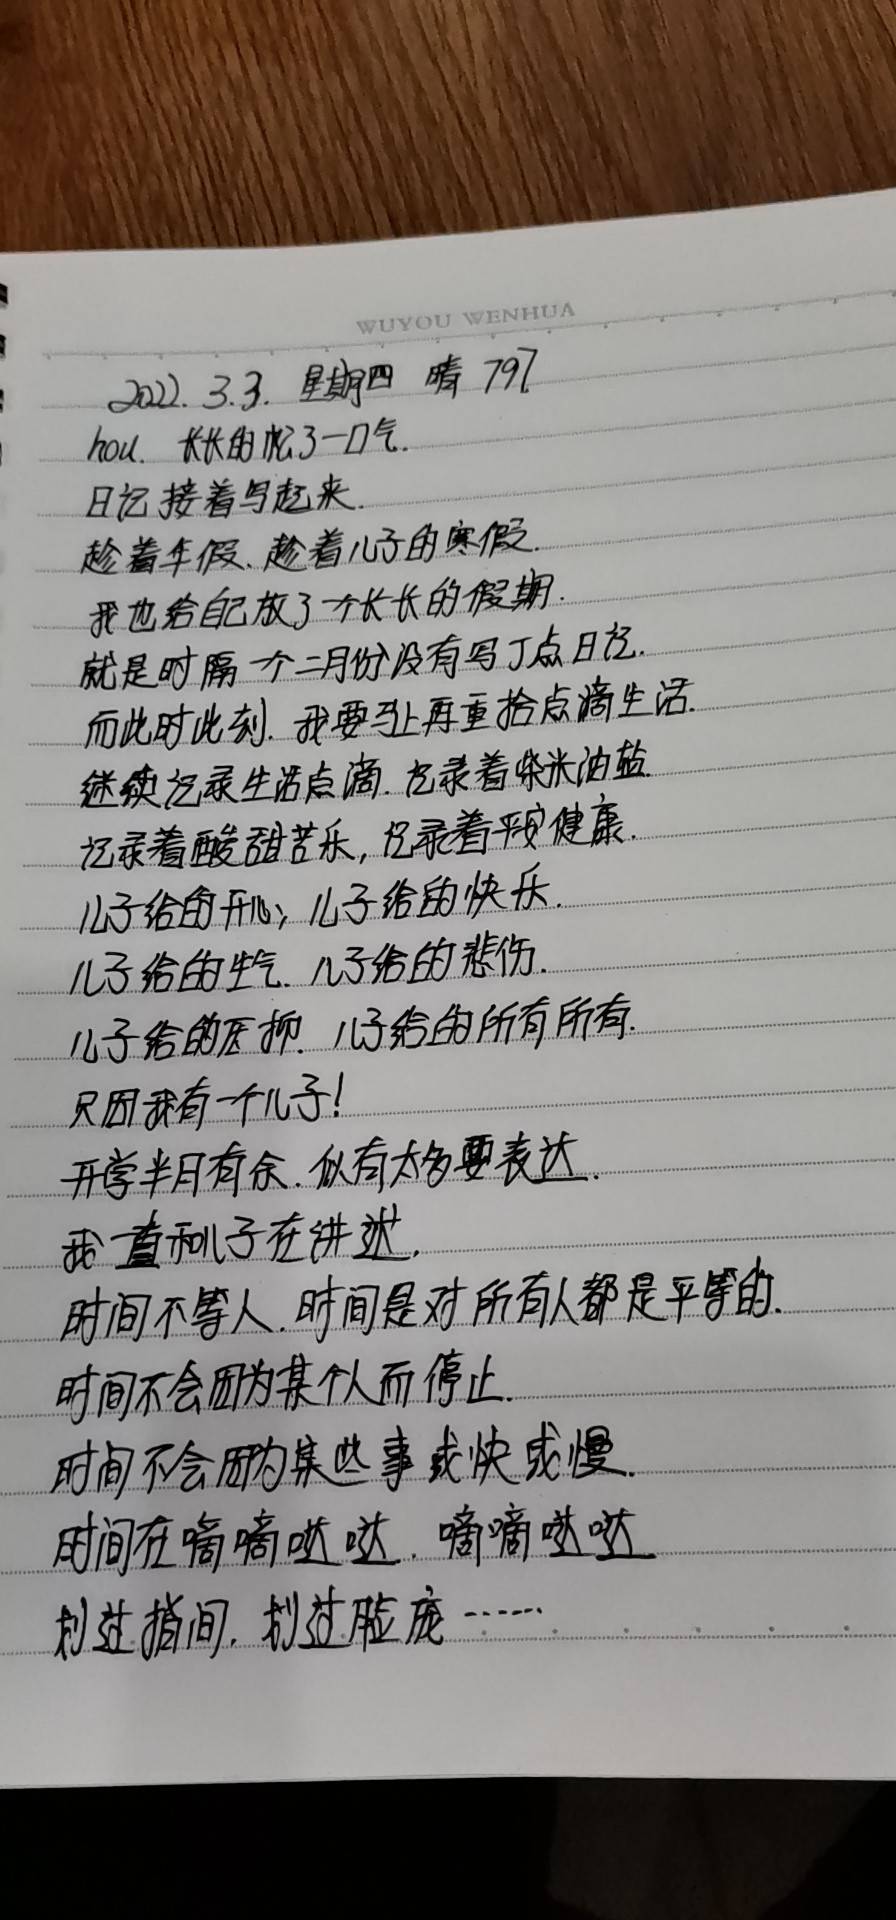 WUYOU WENHUA
2022.3.3. 星期四 晴 797
hou. 长长的松了一口气.
日记接着写起来.
趁着年假、趁着儿子的寒假.
我也给自己放了一个长长的假期.
就是时隔一个二月份没有写丁点日记.
而此时此刻.我要马上再重拾点滴生活.
继续记录生活点滴.记录着柴米油盐.
记录着酸甜苦乐,记录着平安健康.
儿子给的开心,儿子给的快乐.
儿子给的生气.儿子给的悲伤.
儿子给的压抑.儿子给的所有所有.
只因我有一个儿子!
开学半月有余.似有太多要表达.
我一直和儿子在讲述.
时间不等人.时间是对所有人都是平等的.
时间不会因为某个人而停止.
时间不会因为某些事或快或慢.
时间在嘀嘀哒哒.嘀嘀哒哒
划过指间.划过脸庞……